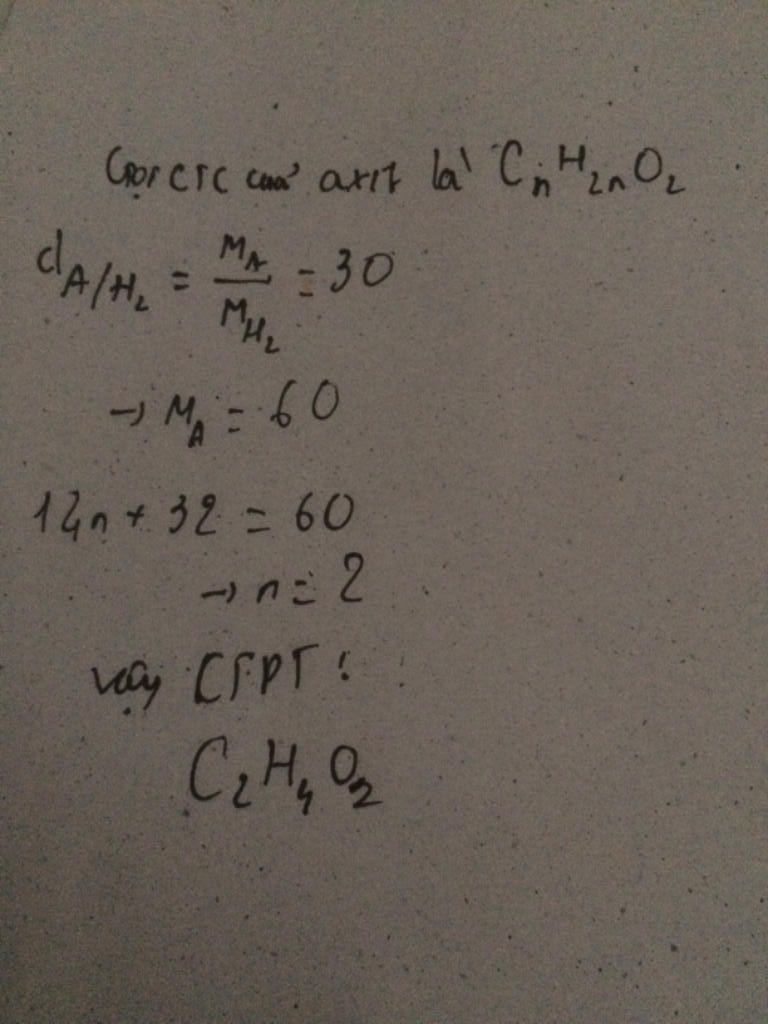 Gọi CTC của axit là CₙH₂ₙO₂
d_A/H₂ = M_A / M_H₂ = 30
→ M_A = 60
14n + 32 = 60
→ n = 2
vậy CTPT :
C₂H₄O₂